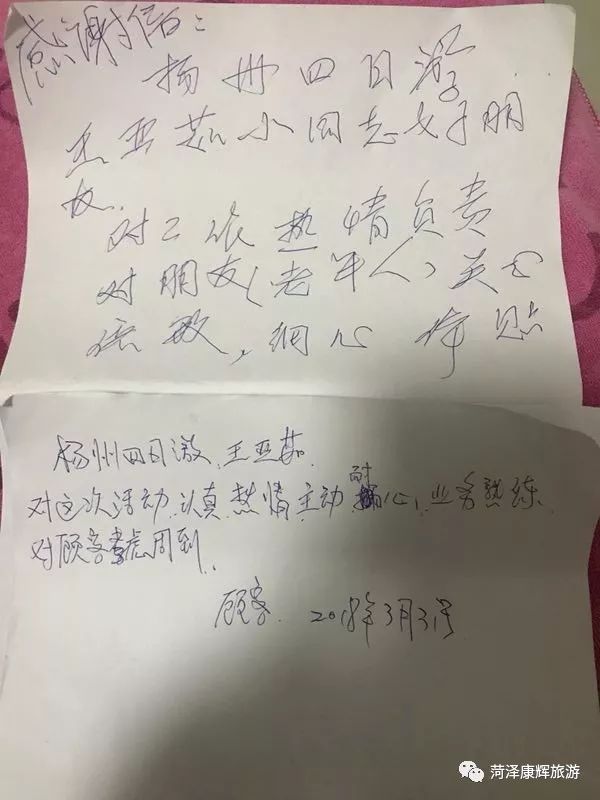 感谢信:
扬州四日游
王亚茹小同志好朋
友.
对工作热情负责
对朋友(老年人)关心
,细心体贴
扬州四日激,王亚茹.
对这次活动,认真热情主动耐心,业务熟练.
对顾客考虑周到.
顾客. 2018年3月31号
菏泽康辉旅游